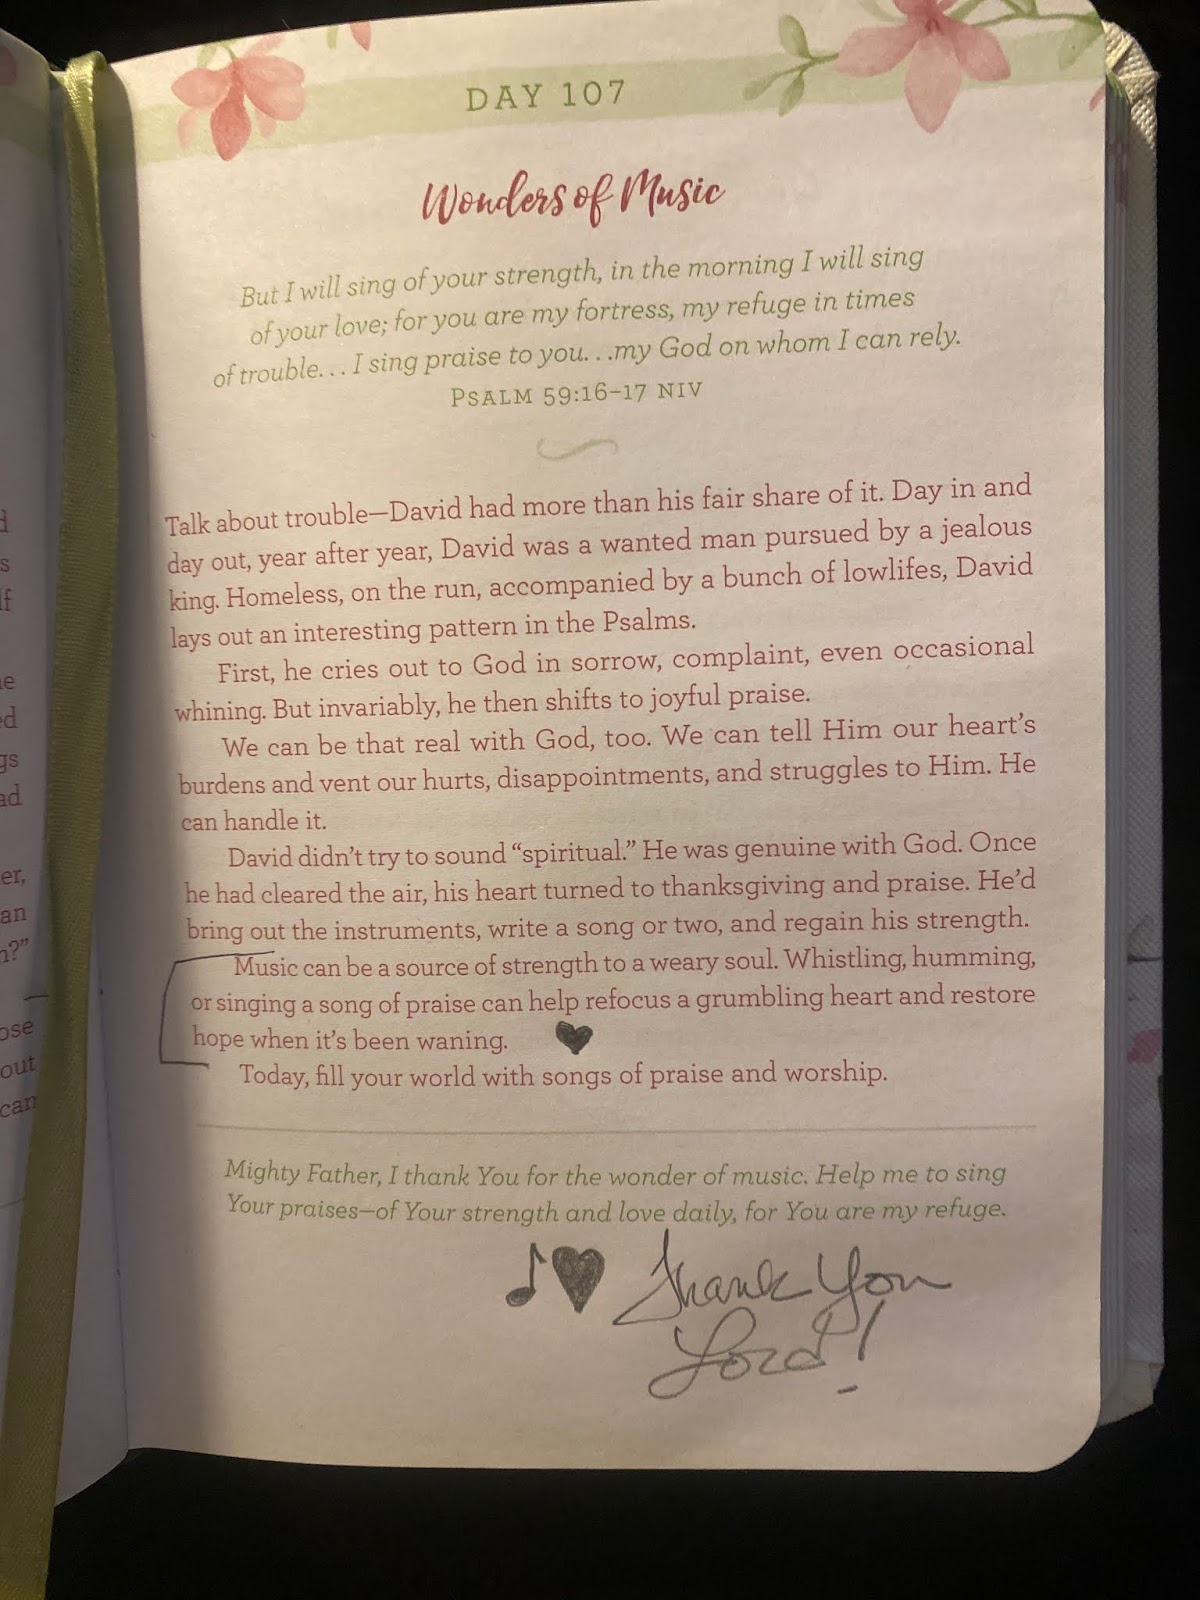 DAY 107
Wonders of Music
But I will sing of your strength, in the morning I will sing
of your love; for you are my fortress, my refuge in times
of trouble. . . I sing praise to you. . .my God on whom I can rely.
PSALM 59:16–17 NIV
Talk about trouble—David had more than his fair share of it. Day in and
day out, year after year, David was a wanted man pursued by a jealous
king. Homeless, on the run, accompanied by a bunch of lowlifes, David
lays out an interesting pattern in the Psalms.
First, he cries out to God in sorrow, complaint, even occasional
whining. But invariably, he then shifts to joyful praise.
We can be that real with God, too. We can tell Him our heart’s
burdens and vent our hurts, disappointments, and struggles to Him. He
can handle it.
David didn’t try to sound “spiritual.” He was genuine with God. Once
he had cleared the air, his heart turned to thanksgiving and praise. He’d
bring out the instruments, write a song or two, and regain his strength.
Music can be a source of strength to a weary soul. Whistling, humming,
or singing a song of praise can help refocus a grumbling heart and restore
hope when it’s been waning.
Today, fill your world with songs of praise and worship.
Mighty Father, I thank You for the wonder of music. Help me to sing
Your praises—of Your strength and love daily, for You are my refuge.
Thank You
Lord!